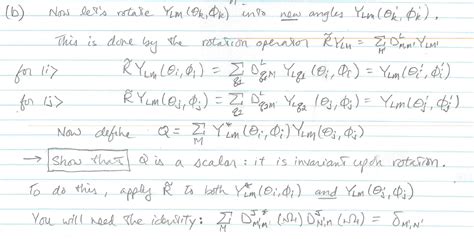 (b) Now let's rotate Y_LM(θ_k, φ_k) into new angles Y_LM(θ'_k, φ'_k).
This is done by the rotation operator R̃ Y_LM = Σ_M' D^L_MM' Y_LM'
for |i> R̃ Y_LM(θ_i, φ_i) = Σ_q₁ D^L_q₁M Y_Lq₁(θ_i, φ_i) = Y_LM(θ_i', φ_i')
for |j> R̃ Y_LM(θ_j, φ_j) = Σ_q₂ D^L_q₂M Y_Lq₂(θ_j, φ_j) = Y_LM(θ_j', φ_j')
Now define Q = Σ_M Y*_LM(θ_i, φ_i) Y_LM(θ_j, φ_j)
→ Show that Q is a scalar: it is invariant upon rotation.
To do this, apply R̃ to both Y*_LM(θ_i, φ_i) and Y_LM(θ_j, φ_j)
You will need the identity: Σ_M D^J*_M'M (Ω) D^J_N'M (Ω) = δ_M'N'